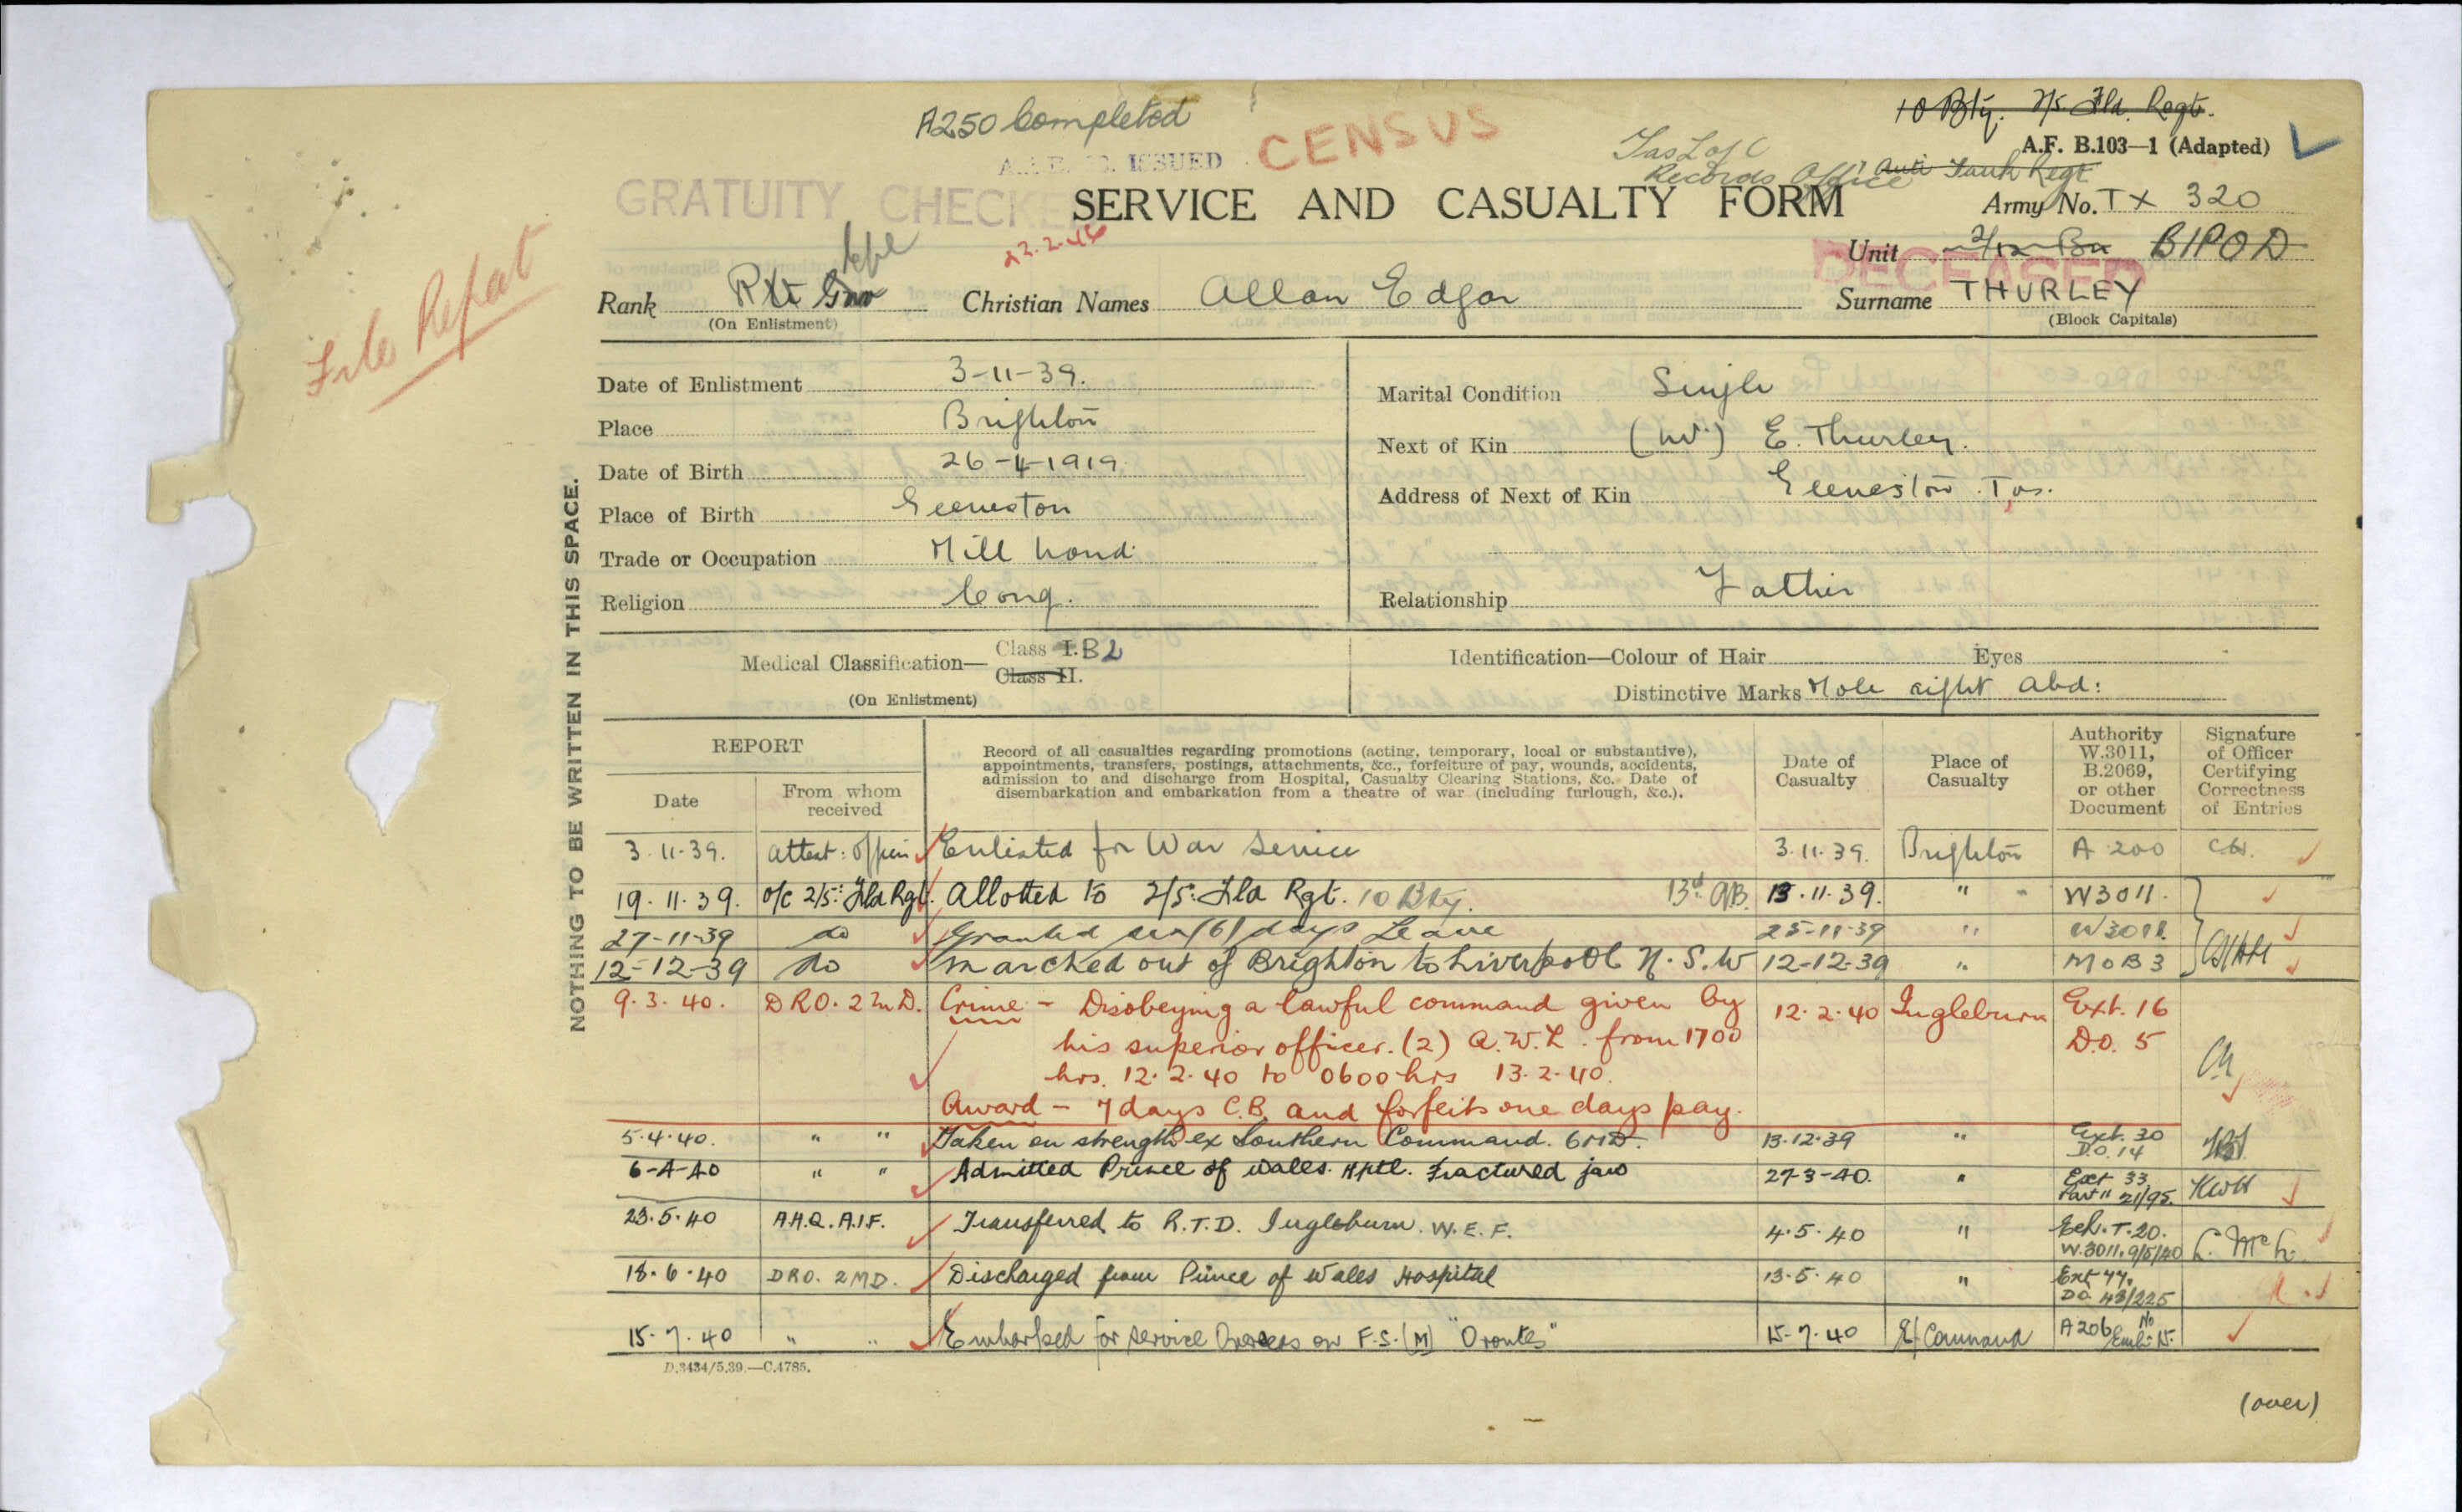 A250 Completed
10 Bty. 2/5. Fld. Regt.
ISSUED
CENSUS
A.F. B.103—1 (Adapted)
Tas L of C
Records Office
Anti Tank Regt
GRATUITY CHECKED
SERVICE AND CASUALTY FORM
Army No. TX 320
22.2.46
Unit 2/12 Bn BIPOD
DECEASED
File Repat
Rank Pte Gnr
Christian Names Allan Edgar
Surname THURLEY
(On Enlistment)
(Block Capitals)
Date of Enlistment 3-11-39.
Marital Condition Single
Place Brighton
Next of Kin E. Thurley.
Date of Birth 26-4-1919
Address of Next of Kin Geeveston. Tas.
Place of Birth Geeveston
Trade or Occupation Mill hand
Religion Cong.
Relationship Father
NOTHING TO BE WRITTEN IN THIS SPACE.
Medical Classification— Class I. B2
Class II.
(On Enlistment)
Identification—Colour of Hair Eyes
Distinctive Marks Mole right abd:
REPORT
Date
From whom received
Record of all casualties regarding promotions (acting, temporary, local or substantive),
appointments, transfers, postings, attachments, &c., forfeiture of pay, wounds, accidents,
admission to and discharge from Hospital, Casualty Clearing Stations, &c. Date of
disembarkation and embarkation from a theatre of war (including furlough, &c.).
Date of Casualty
Place of Casualty
Authority W.3011, B.2069, or other Document
Signature of Officer Certifying Correctness of Entries
3.11.39. Attest: Officer Enlisted for War Service 3.11.39. Brighton A 200
19.11.39. O/C 2/5: Fld Rgt. Allotted to 2/5: Fld Rgt. 10 Bty. 13.11.39. " W3011.
27-11-39 do Granted six (6) days Leave 25-11-39 " W3011
12-12-39 do Marched out of Brighton to Liverpool N.S.W 12-12-39 " MOB3
9.3.40. DRO. 2 M.D. Crime - Disobeying a lawful command given by 12.2.40 Ingleburn Ext. 16
his superior officer. (2) A.W.L. from 1700 D.O. 5
hrs. 12.2.40 to 0600 hrs 13.2.40.
Award - 7 days C.B. and forfeits one days pay.
5.4.40. " " Taken on strength ex Southern Command. 6 MD. 13.12.39 " Ext. 30
D.O. 14
6-4-40 " " Admitted Prince of Wales. Hptl. Fractured jaw 27-3-40. " Ext 33.
Part II 21/95. KWH
23.5.40 A.H.Q. A.I.F. Transferred to R.T.D. Ingleburn. W.E.F. 4.5.40 " Ech. T.20.
W.3011. 9/5/40
18.6.40 DRO. 2MD. Discharged from Prince of Wales Hospital 13.5.40 " Ext 44.
DO 43/225
15.7.40 " " Embarked for service Overseas on F.S. (M) "Orontes" 15.7.40 E/Command A206 No
Emb: 15.
D.3434/5.39.—C.4785.
(over)